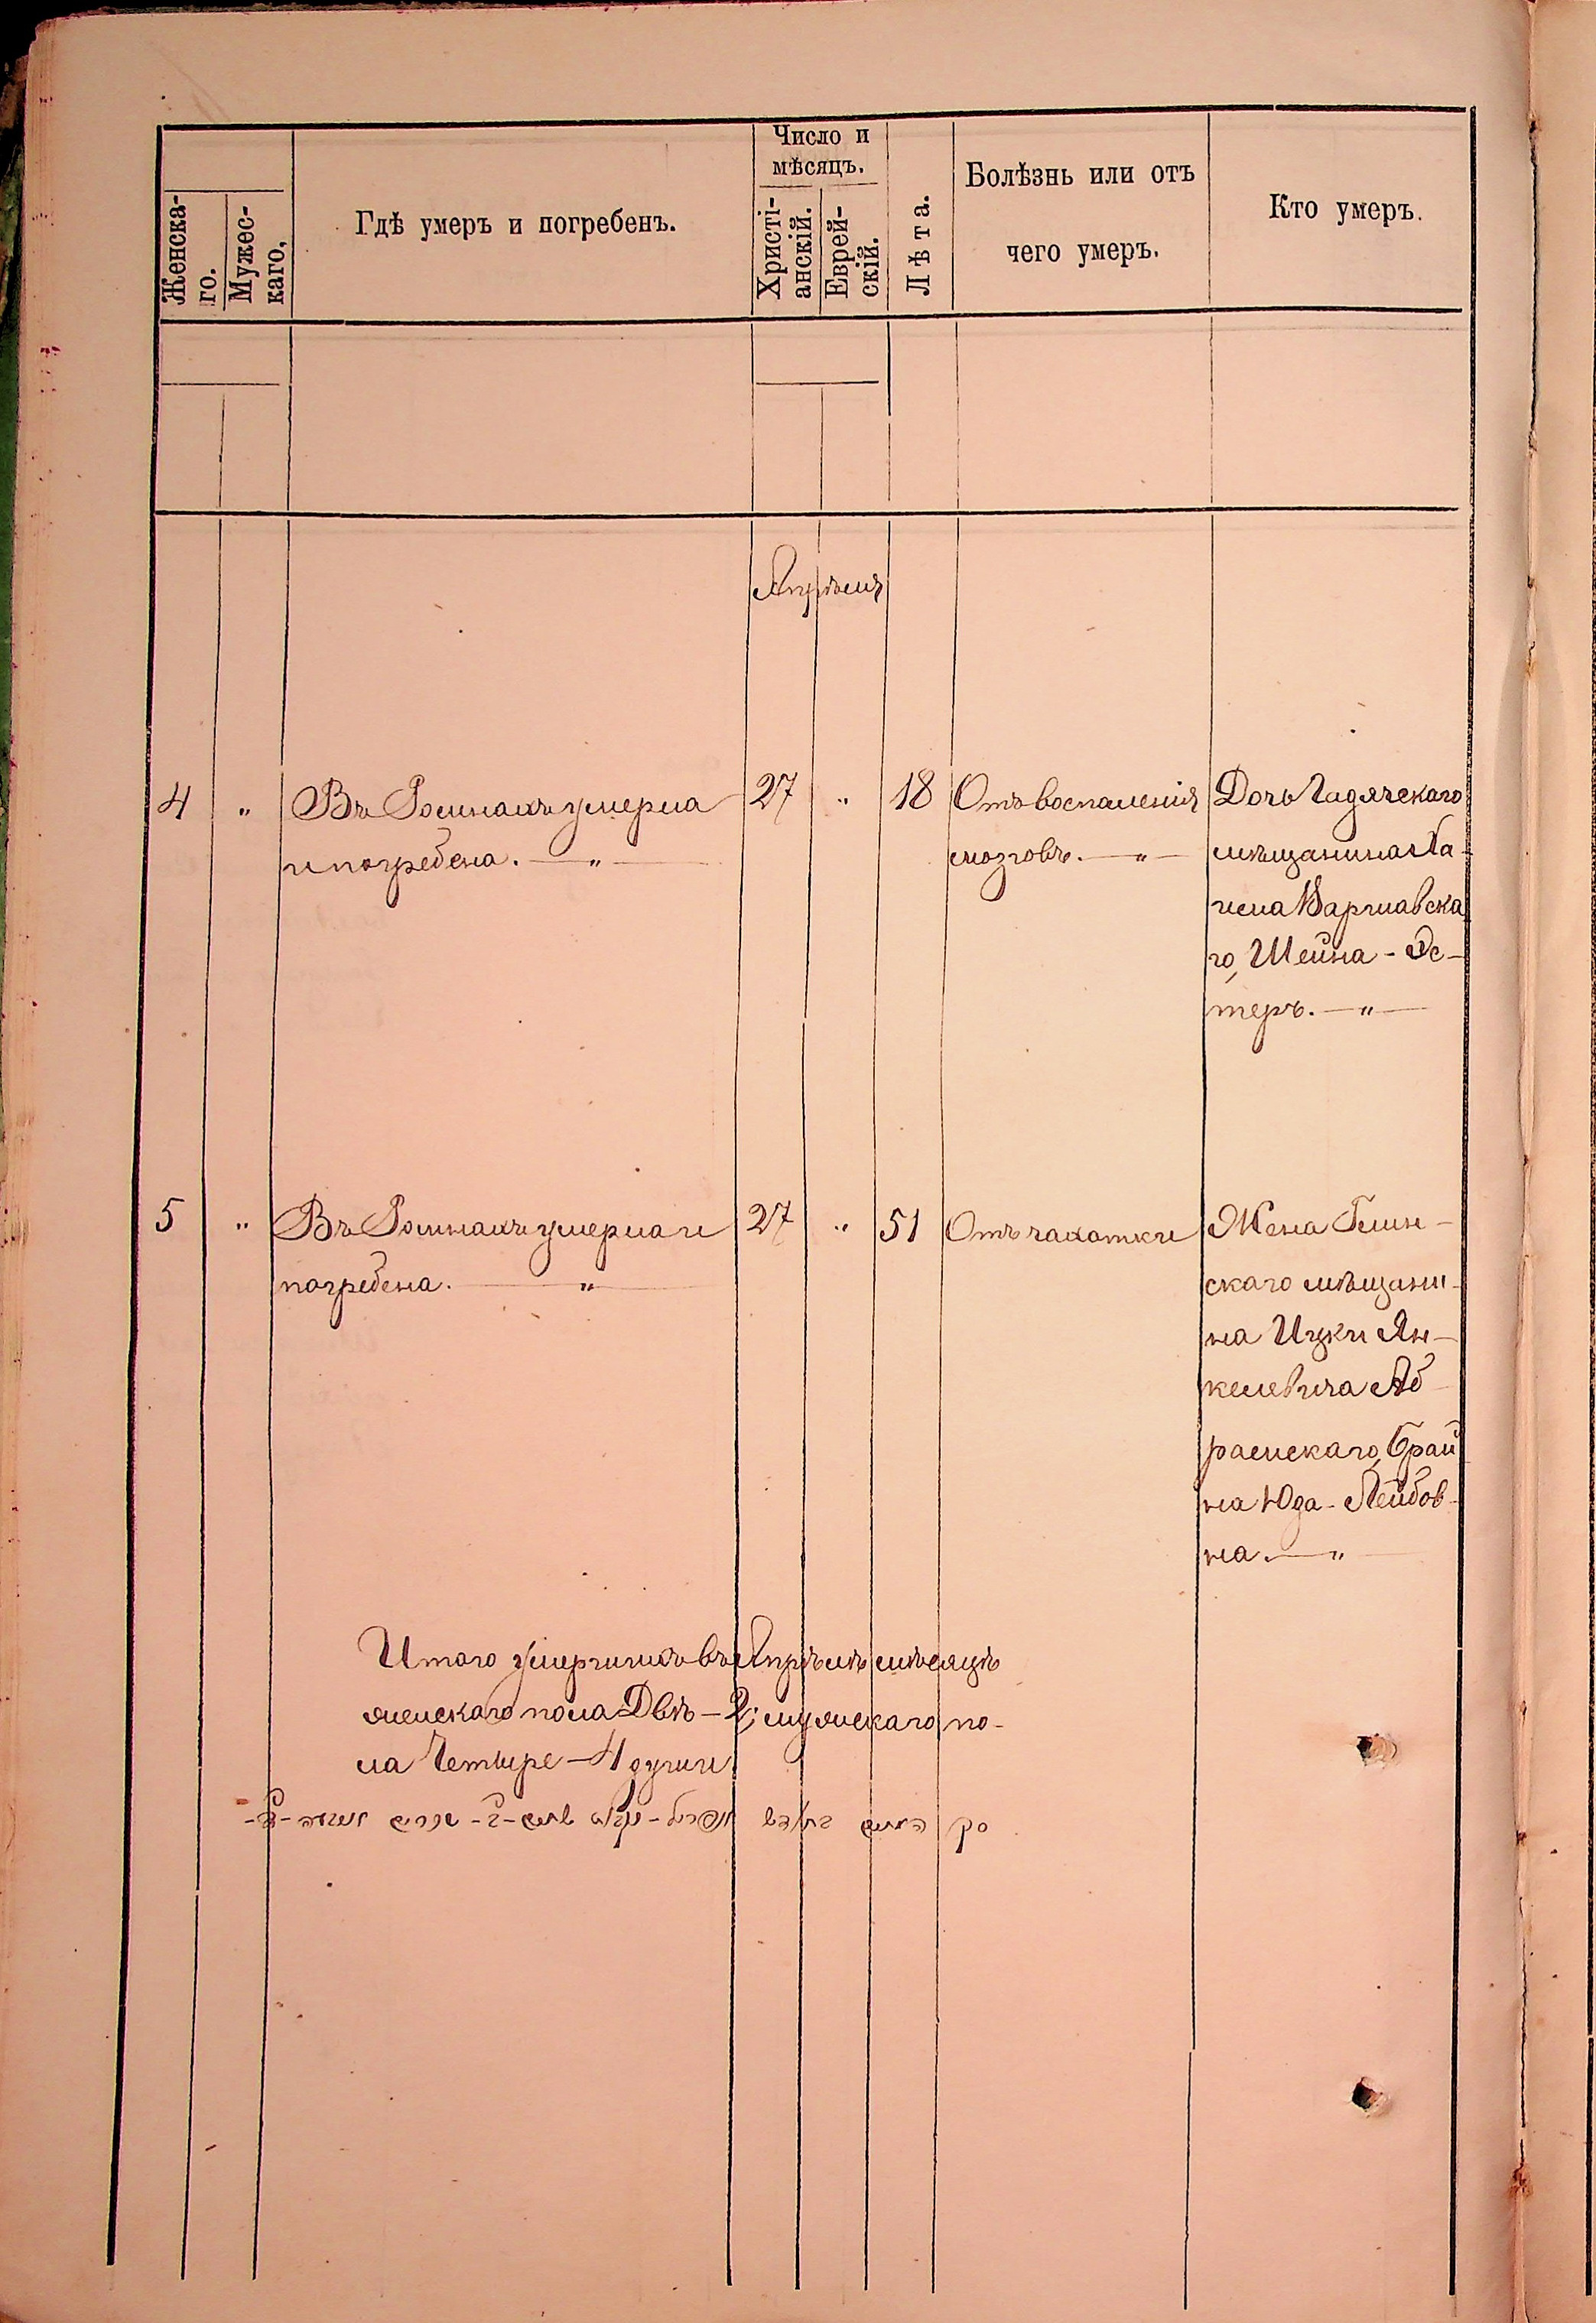 Женска-
го.
Мужес-
каго,
Гдѣ умеръ и погребенъ.
Число и
мѣсяцъ.
Христі-
анскій.
Еврей-
скій.
Лѣта.
Болѣзнь или отъ
чего умеръ.
Кто умеръ.
Апрѣль
4 " Въ Ромнахъ умерла 27 " 18 Отъ воспаленія Дочь Гадячскаго
и погребена. — " — мозговъ. — " — мѣщанина Ха-
Варшавска
го, Шейна - Эс-
теръ. — " —
5 " Въ Ромнахъ умерла и 27 " 51 Отъ чахотки Жена Глин-
погребена. — " — скаго мѣщани-
на Ицки Ян-
келевича Аб-
рамскаго, Брай
на Юда - Лейбов-
на. — " —
Итого умершихъ въ Апрѣлѣ мѣсяцѣ
женскаго пола Двѣ — 2; мужескаго по-
ла Четыре — 4 души